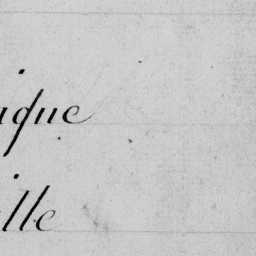 ique
ille